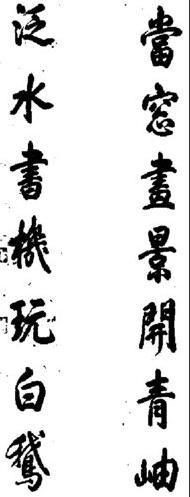 當窓畫景開青岫
泛水書機玩白鵞